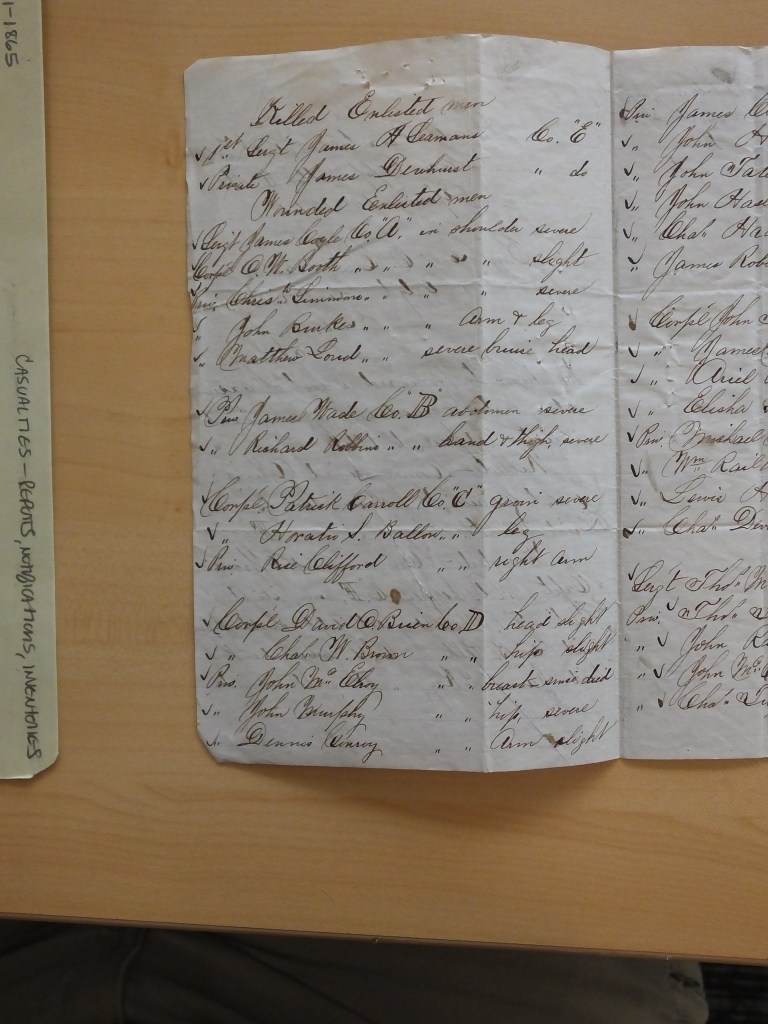 1-1865
CASUALTIES - REPORTS, NOTIFICATIONS, INVENTORIES
Killed Enlisted men
✓ 1st Sergt James A Seamans Co. "E"
✓ Private James Dewhurst " do
Wounded Enlisted men
✓ Sergt James Cogle Co. "A" in shoulder severe
Corpl C. W. Booth " " " " slight
Priv. Chris Simmons " " " " severe
✓ " John Burke " " " Arm & leg
✓ " Matthew Loud " " severe bruise head
✓ Priv James Wade Co. B abdomen severe
✓ " Richard Robbins " " hand & thigh, severe
✓ Corpl. Patrick Carroll Co. "C" groin severe
✓ " Horatio S. Ballou " " leg
✓ Priv. Rice Clifford " " right arm
✓ Corpl David O'Brien Co. D head slight
✓ " Chas W. Brown " " hip slight
✓ Priv. John Mc Elroy " " breast since died
✓ " John Murphy " " hip, severe
✓ " Dennis Conroy " " Arm slight
Priv James
✓ " John
✓ " John
✓ " John
✓ " Chas
✓ " James
✓ Corpl John
✓ " James
✓ " Ariel
✓ " Elisha
✓ Priv. Michael
✓ " Wm
✓ " Lewis
✓ " Chas
✓ Sergt Thos
Priv. " Thos
" ✓ John
" ✓ John Mc
" ✓ Chas